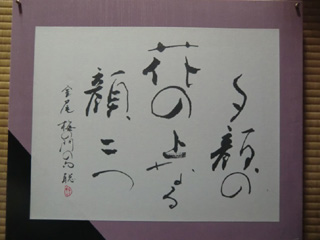 夕顔の
花の上なる
顔二つ
金尾梅の門